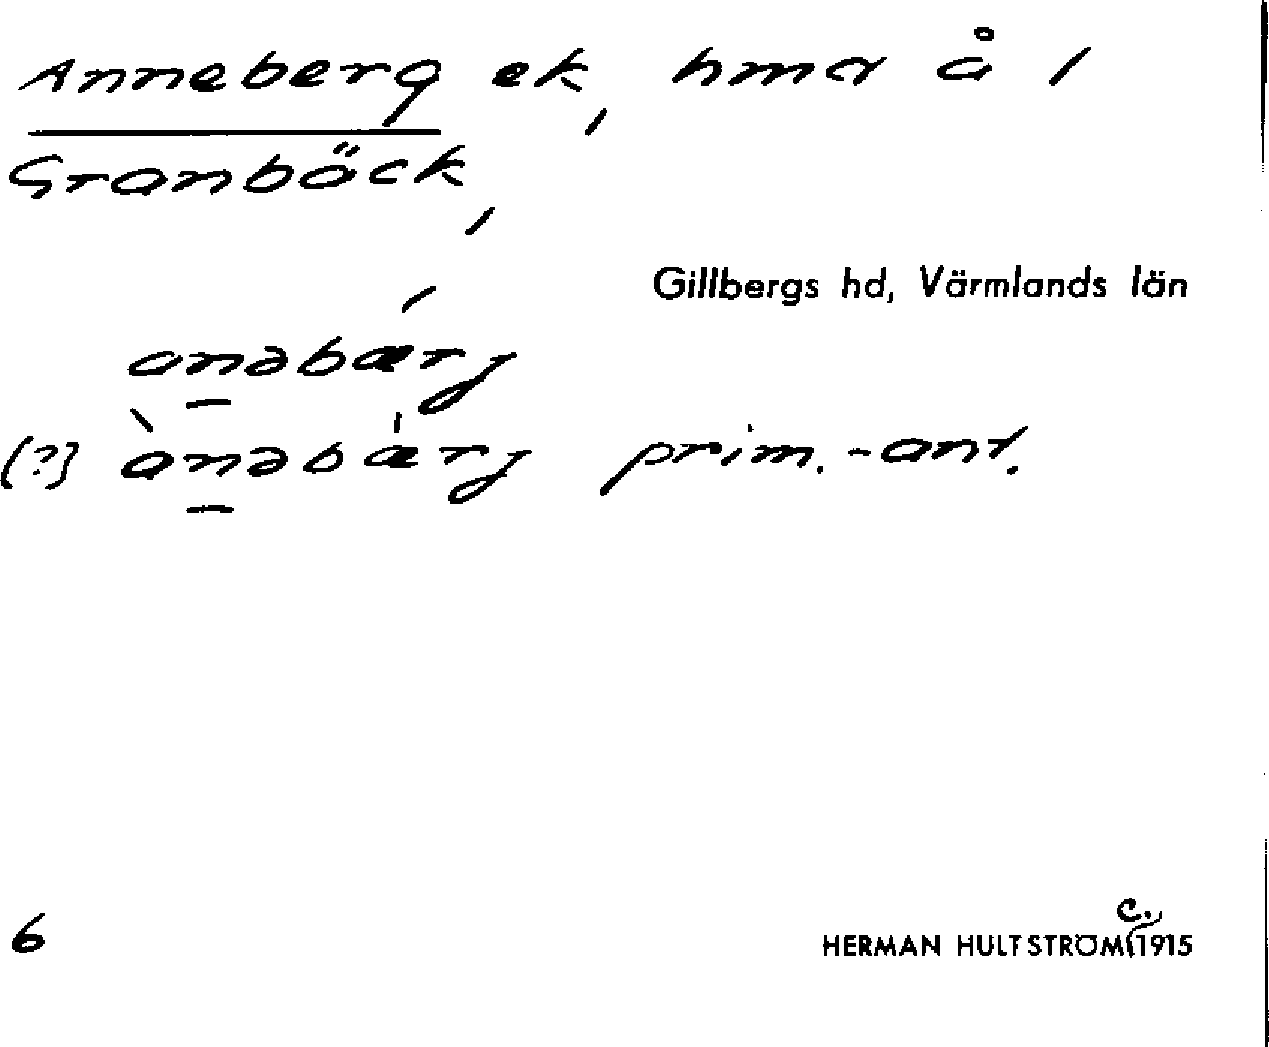 Anneberg ek, hmd å 1
Granbäck,
Gillbergs hd, Värmlands län
anəbærj
(?) ànəbærj prim.-ant.
6
c.
HERMAN HULTSTRÖM 1915